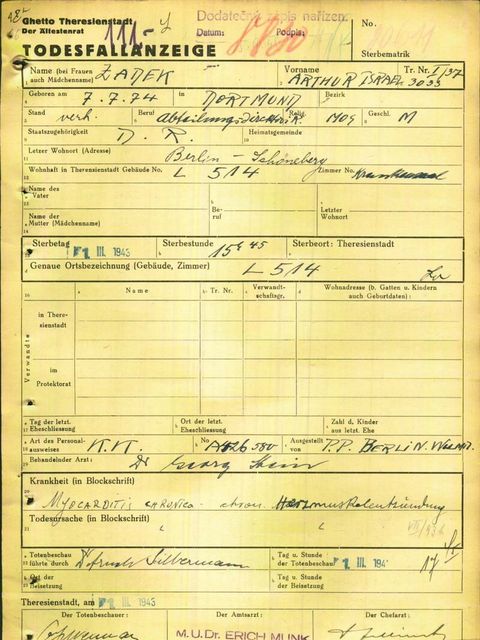 Ghetto Theresienstadt
Der Ältestenrat
111.-
Dodatečný zápis nařízen.
Datum: Podpis:
No.
TODESFALLANZEIGE
Sterbematrik
Name (bei Frauen auch Mädchenname) ZADEK
Vorname ARTHUR ISRAEL
Tr. Nr. I/37
3033
Geboren am 7.7.74 in DORTMUND Bezirk
Stand verh. Beruf Abteilungs-Direktor Relig. mos Geschl. M
Staatszugehörigkeit D. R. Heimatsgemeinde
Letzter Wohnort (Adresse) Berlin - Schöneberg
Wohnhaft in Theresienstadt Gebäude No. L 514 Zimmer No.
Name des Vater
Beruf
Letzter Wohnort
Name der Mutter (Mädchenname)
Sterbetag 1. III. 1943 Sterbestunde 15h 45 Sterbeort: Theresienstadt
Genaue Ortsbezeichnung (Gebäude, Zimmer) L 514
Name
Tr. Nr.
Verwandtschaftsgr.
Wohnadresse (b. Gatten u. Kindern auch Geburtdaten):
Verwandte
in Theresienstadt
im Protektorat
Tag der letzt. Eheschliessung
Ort der letzt. Eheschliessung
Zahl d. Kinder aus letzt. Ehe
Art des Personalausweises K.K. No Ausgestellt von P.P. BERLIN.
Behandelnder Arzt: Dr Georg Stein
Krankheit (in Blockschrift)
MYOCARDITIS CHRONICA - chron. Herzmuskelentzündung
Todesursache (in Blockschrift)
Totenbeschau führte durch Silbermann Tag u. Stunde der Totenbeschau 1. III. 194 17
Ort der Beisetzung
Tag u. Stunde der Beisetzung
Theresienstadt, am 1. III. 1943
Der Totenbeschauer: Der Amtsarzt: Der Chefarzt:
M.U.Dr. ERICH MUNK